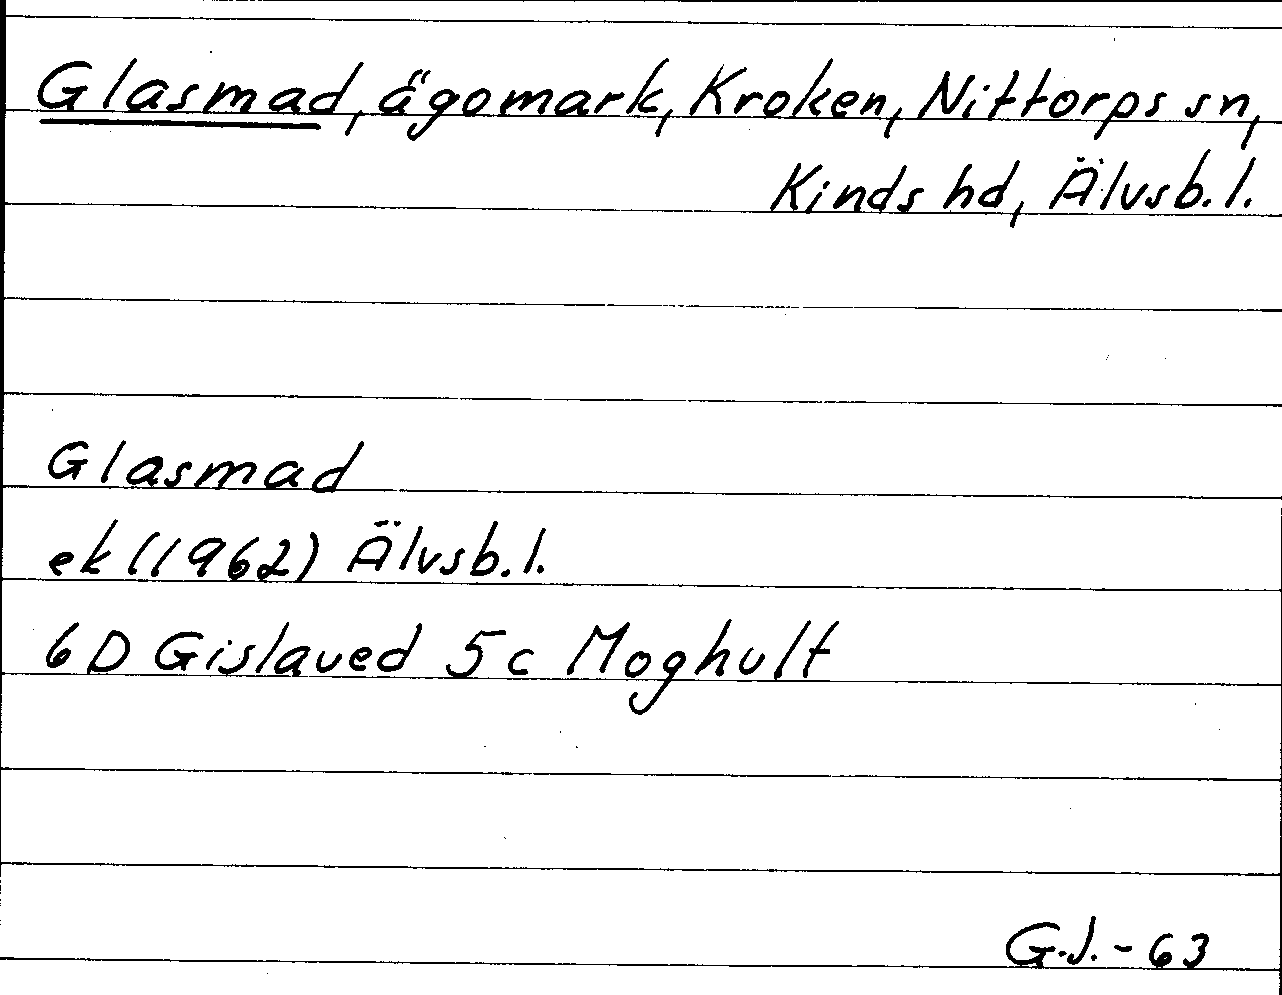 Glasmad, ägomark, Kroken, Nittorps sn,
Kinds hd, Älvsb.l.
Glasmad
ek (1962) Älvsb.l.
6D Gislaved 5c Moghult
G.J.-63